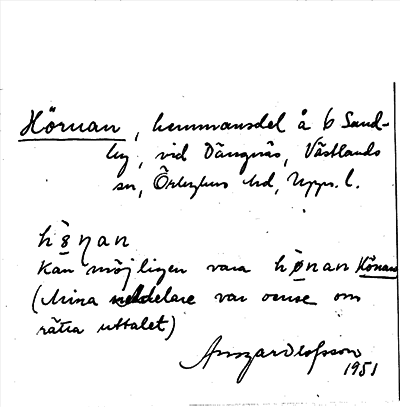 Hörnan, hemmansdel å 6 Sand-
by, vid Dängnäs, Västlands
sn, Örbyhus hd, Upps. l.
hɵ̀ŋan
Kan möjligen vara hø̀nan Hönan
(Mina meddelare var oense om
rätta uttalet)
Ansgar Olofsson
1951